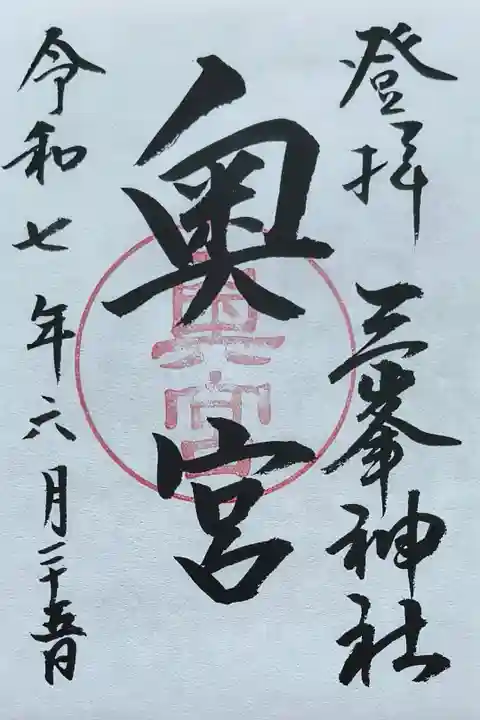 登拝 三峯神社
奥宮
奥宮
令和七年六月二十五日